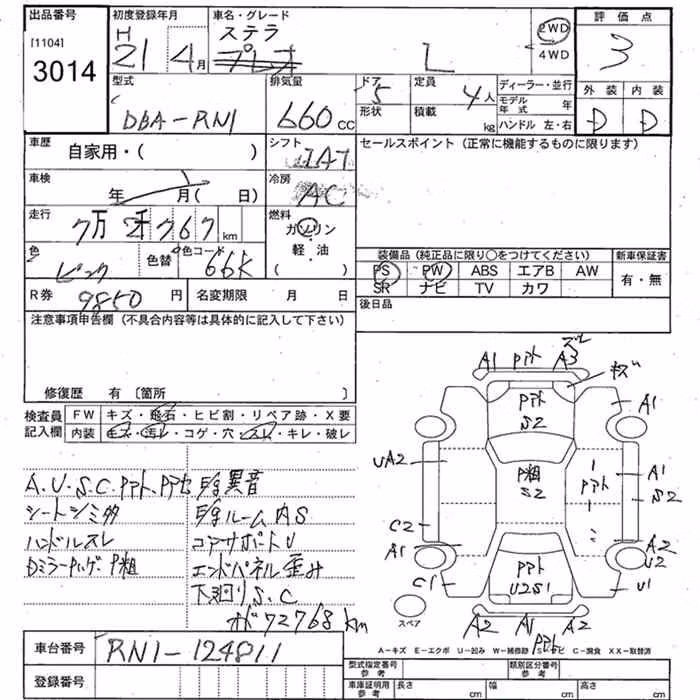 出品番号 初度登録年月 車名・グレード 評価点
[1104] H ステラ 2WD
3014 21 4月 L 4WD 3
型式 排気量 ドア 5 定員 4人 ディーラー・並行 外装 内装
DBA-RN1 660cc 形状 積載 kg モデル年式 年 D D
ハンドル 左・右
車歴 自家用・( ) シフト セールスポイント (正常に機能するものに限ります)
車検 年 月( 日) 冷房 AC
走行 7万 2千 767 km 燃料 ガソリン
軽・油
( )
色 ピンク 色替 色コード 66K 装備品 (純正品に限り○をつけてください) 新車保証書
PS PW ABS エアB AW 有・無
SR ナビ TV カワ
R券 9850円 名変期限 月 日 後日品
注意事項申告欄 (不具合内容等は具体的に記入して下さい)
修復歴 有 [箇所 ]
検査員 FW キズ・飛石・ヒビ割・リペア跡・X要
記入欄 内装 キズ・汚レ・コゲ・穴・スレ・キレ・破レ
A.U.S.C 異音
シートシミ多 ルーム内S
ハンドルスレ コアサポートU
エンドパネル歪み
下廻りS.C
72768km
A1 A3 ズレ
キズ
A1
S2
UA2 P粗 S2 A1
S2
C2
A1 A2
U2
C1 U2S1 U1
スペア A2 A1 A2
A-キズ E-エクボ U-凹み W-補修跡 S-サビ C-腐食 XX-取替済
車台番号 RN1-124811
登録番号
型式指定番号 参考 類別区分番号 参考
車庫証明用 参考 長さ cm 幅 cm 高さ cm